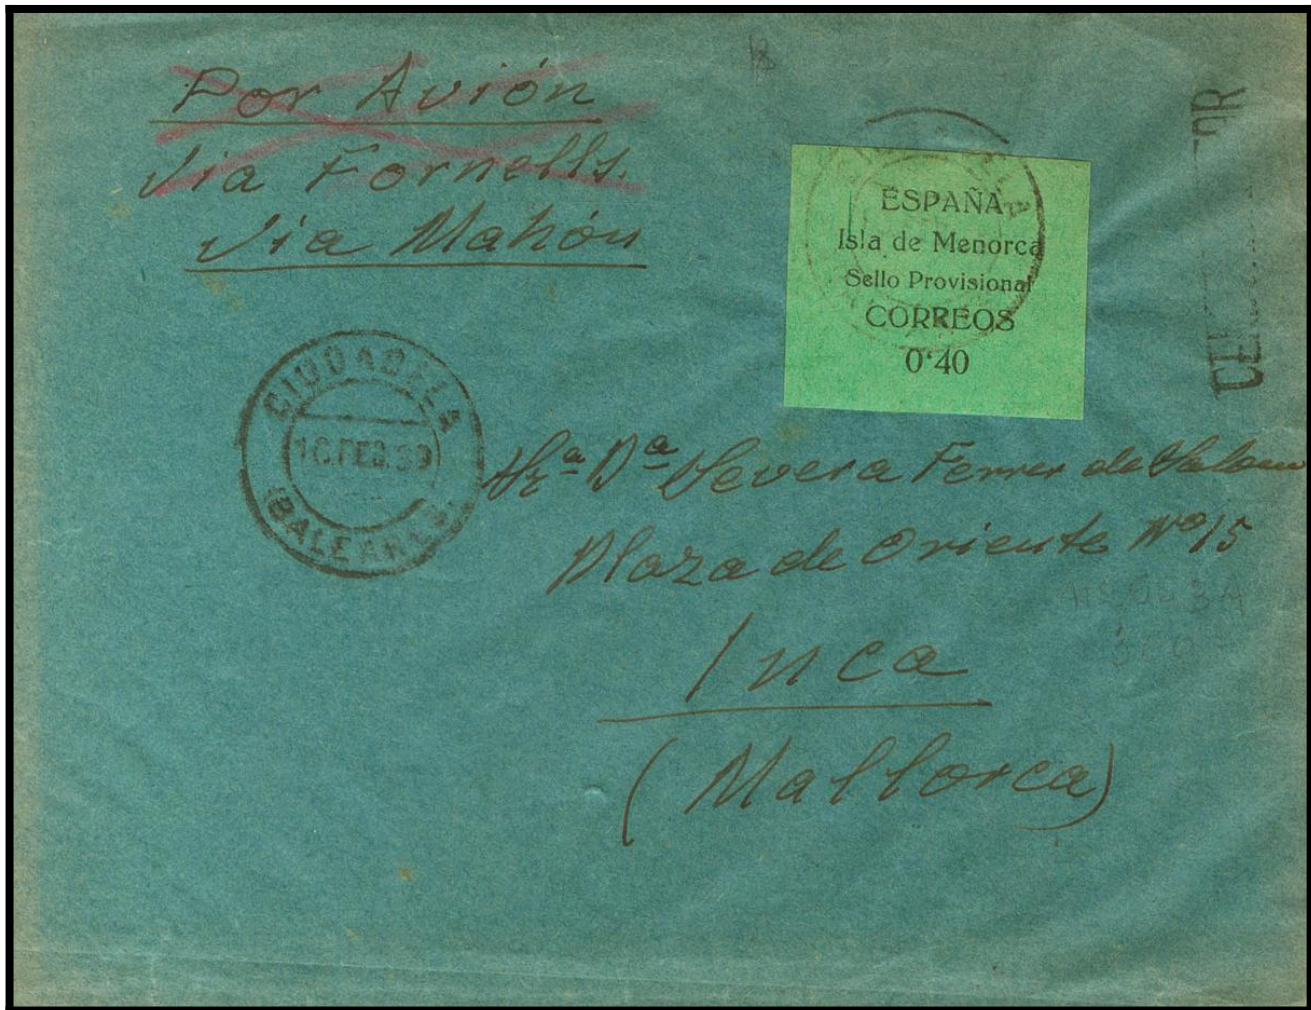 Por Avión
Via Fornells.
Via Mahón
ESPAÑA
Isla de Menorca
Sello Provisional
CORREOS
0'40
CIUDADELA
FEB.39
(BALEARES)
Sr.ª D.ª Severa Ferrer de
Plaza de Oriente Nº 15
Inca
(Mallorca)